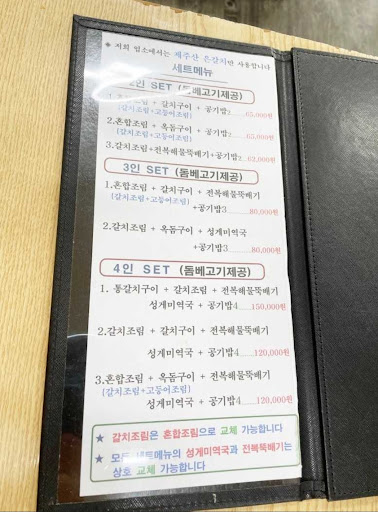 ◈ 저희 업소에서는 제주산 은갈치만 사용합니다
세트메뉴
2인 SET (돔베고기제공)
조림 + 갈치구이 + 공기밥2 65,000원
(갈치조림+고등어조림)
2.혼합조림 + 옥돔구이 + 공기밥2 65,000원
(갈치조림+고등어조림)
3.갈치조림+전복해물뚝배기+공기밥2 62,000원
3인 SET (돔베고기제공)
1.혼합조림 + 갈치구이 + 전복해물뚝배기
(갈치조림+고등어조림) +공기밥3 80,000원
2.갈치조림 + 옥돔구이 + 성게미역국
+공기밥3 80,000원
4인 SET (돔베고기제공)
1. 통갈치구이 + 갈치조림 + 전복해물뚝배기
성게미역국 + 공기밥4 150,000원
2.갈치조림 + 갈치구이 + 전복해물뚝배기
성게미역국 + 공기밥4 120,000원
3.혼합조림 + 옥돔구이 + 전복해물뚝배기
(갈치조림+고등어조림)
성게미역국 + 공기밥4 120,000원
★ 갈치조림은 혼합조림으로 교체 가능합니다
★ 모든 세트메뉴의 성게미역국과 전복뚝배기는
상호 교체 가능합니다